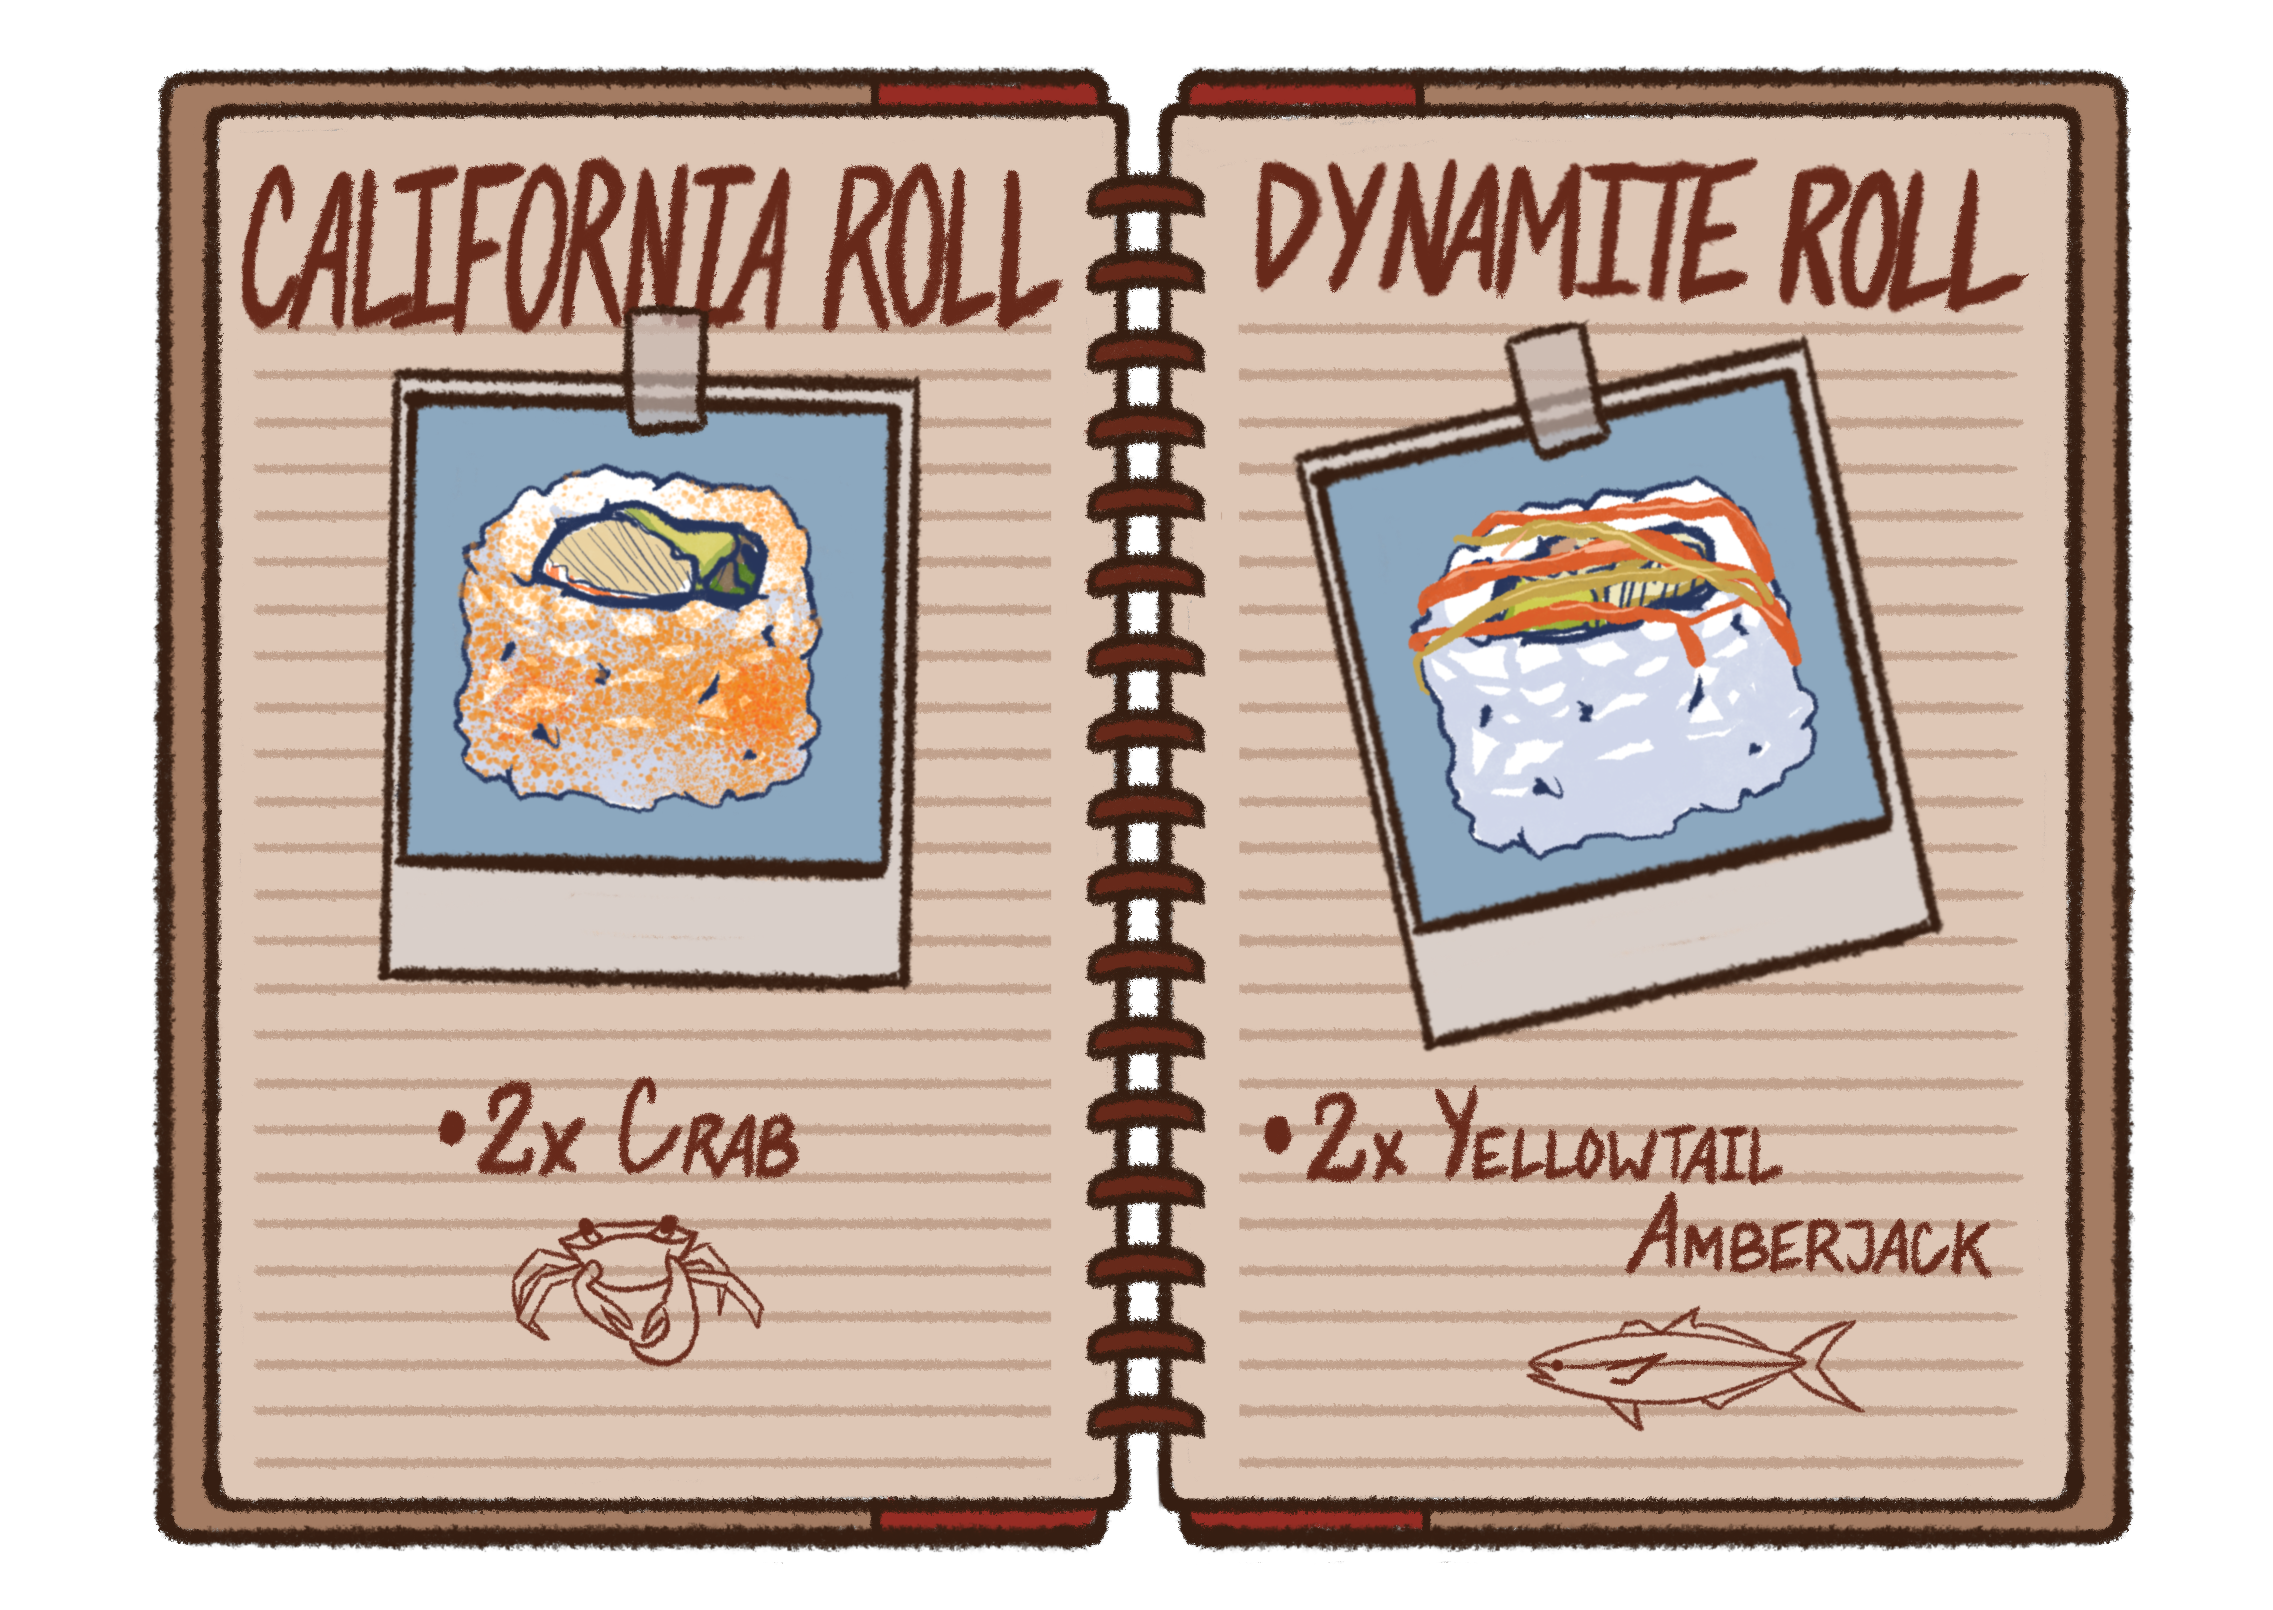 CALIFORNIA ROLL
• 2x CRAB
DYNAMITE ROLL
• 2x YELLOWTAIL
AMBERJACK